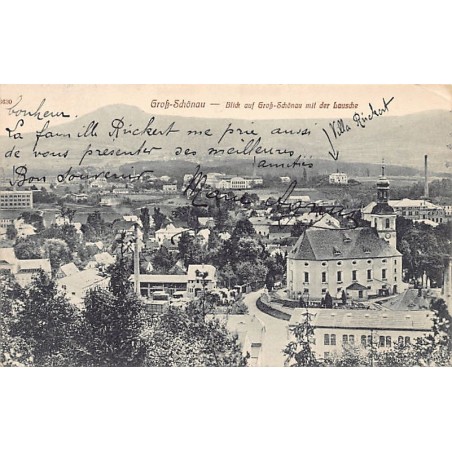 Groß-Schönau — Blick auf Groß-Schönau mit der Lausche
bonheur.
La famille Rückert me prie aussi
de vous présenter ses meilleures
amitiés
Bon Souvenir
Villa Rückert